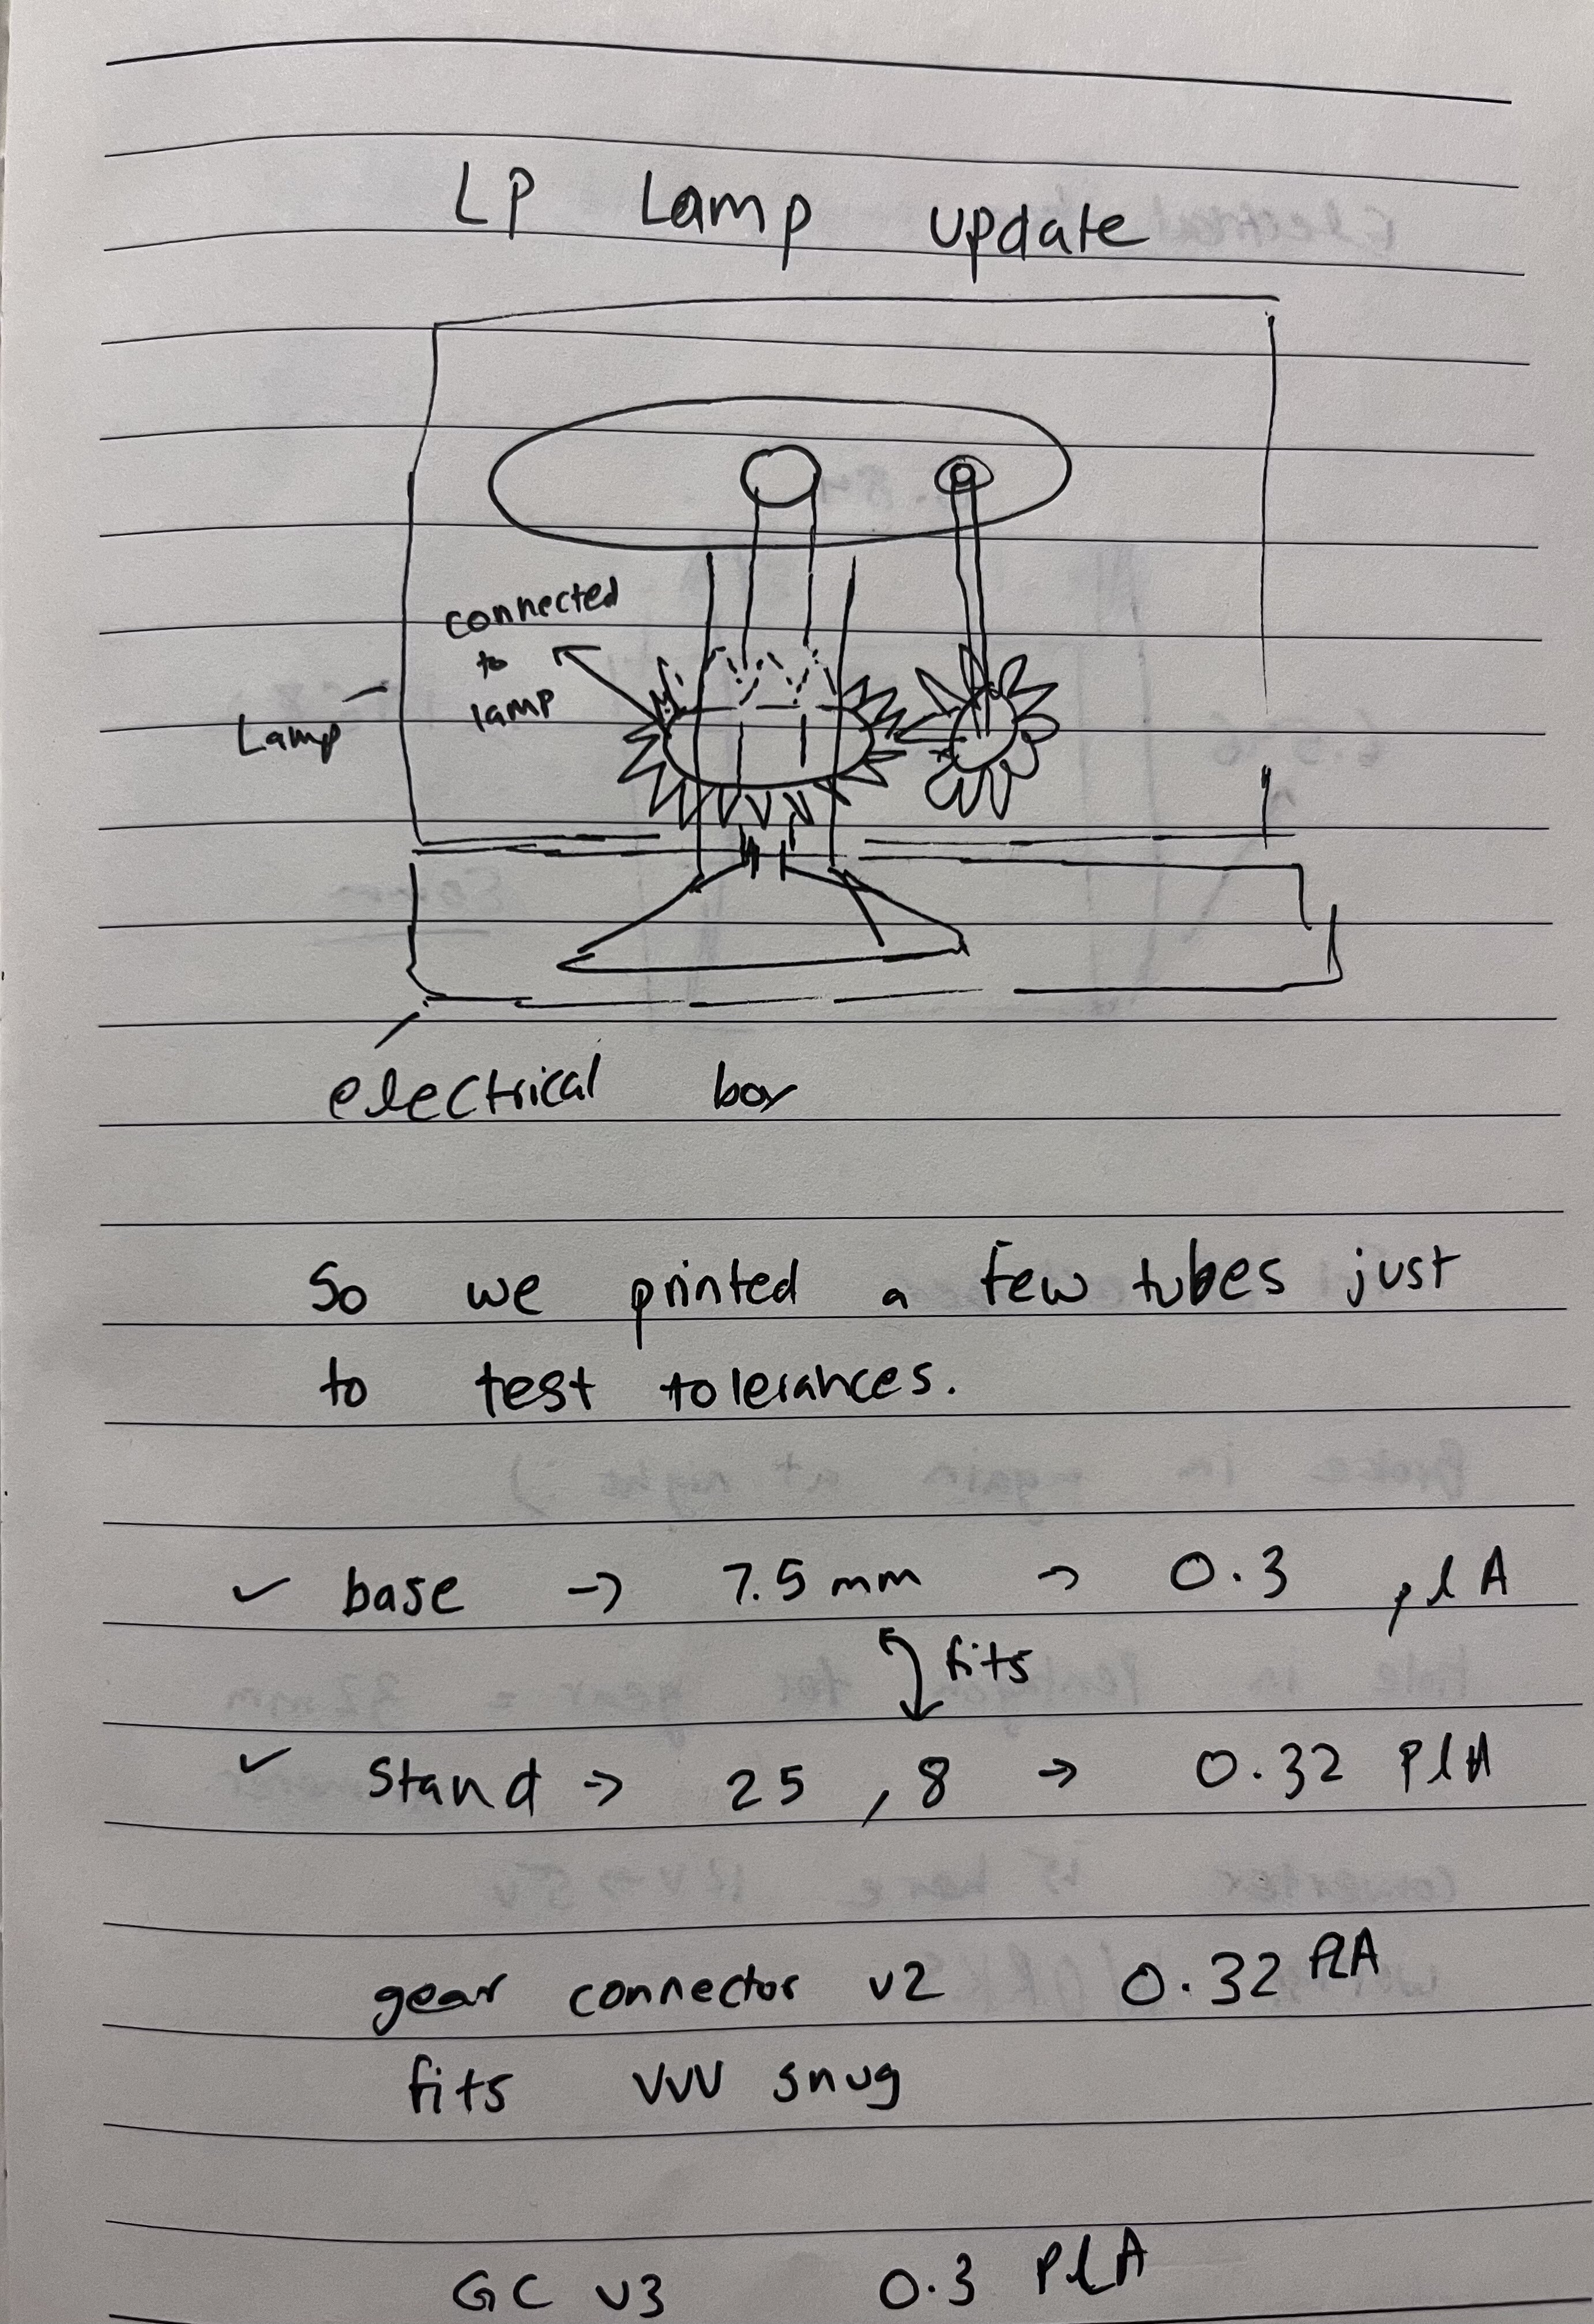 LP Lamp update
connected
to
lamp
Lamp
electrical box
So we printed a few tubes just
to test tolerances.
✓ base → 7.5mm → 0.3 plA
fits
✓ Stand → 25 , 8 → 0.32 PlA
gear connector v2 0.32 PLA
fits vvv snug
GC v3 0.3 PlA